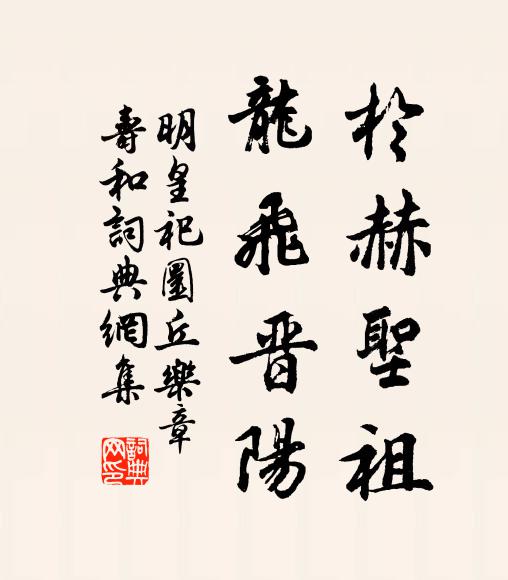 於赫聖祖
龍飛晉陽
明皇祀圜丘樂章
壽和詞典網集
詞典网印